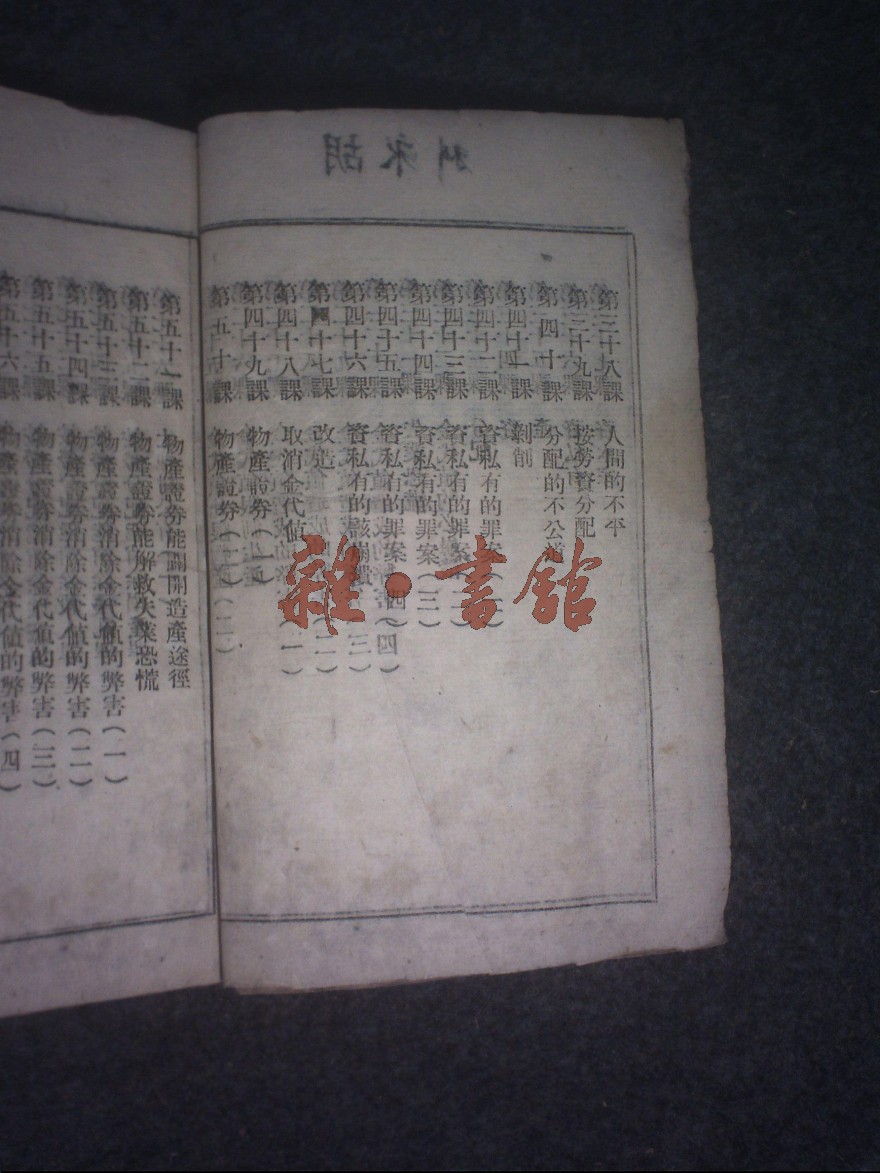 胡永
第三十八課　人間的不平
第三十九課　按勞資分配
第四十課　分配的不公道
第四十一課　剝削
第四十二課　資私有的罪案（一）
第四十三課　資私有的罪案（二）
第四十四課　資私有的罪案（三）
第四十五課　資私有的罪案（四）
第四十六課　資私有的該崩潰
第四十七課　改造
第四十八課　取消金代值
第四十九課　物產證券（一）
第五十課　物產證券（二）
第五十一課　物產證券能闢開造產途徑
第五十二課　物產證券能解救失業恐慌
第五十三課　物產證券消除金代值的弊害（一）
第五十四課　物產證券消除金代值的弊害（二）
第五十五課　物產證券消除金代值的弊害（三）
第五十六課　物產證券消除金代值的弊害（四）
雜·書館